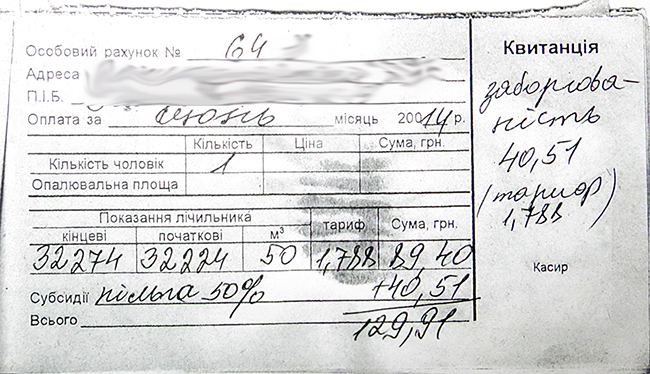 Особовий рахунок № 64
Адреса
П.І.Б.
Оплата за июнь місяць 20014 р.
Кількість Ціна Сума, грн.
Кількість чоловік 1
Опалювальна площа
Показання лічильника м³ тариф Сума, грн.
кінцеві початкові
32274 32224 50 1,788 89,40
Субсидії пільга 50% +40,51
Всього 129,91
Квитанція
заборгова-
ність
40,51
(тариф)
1,788
Касир